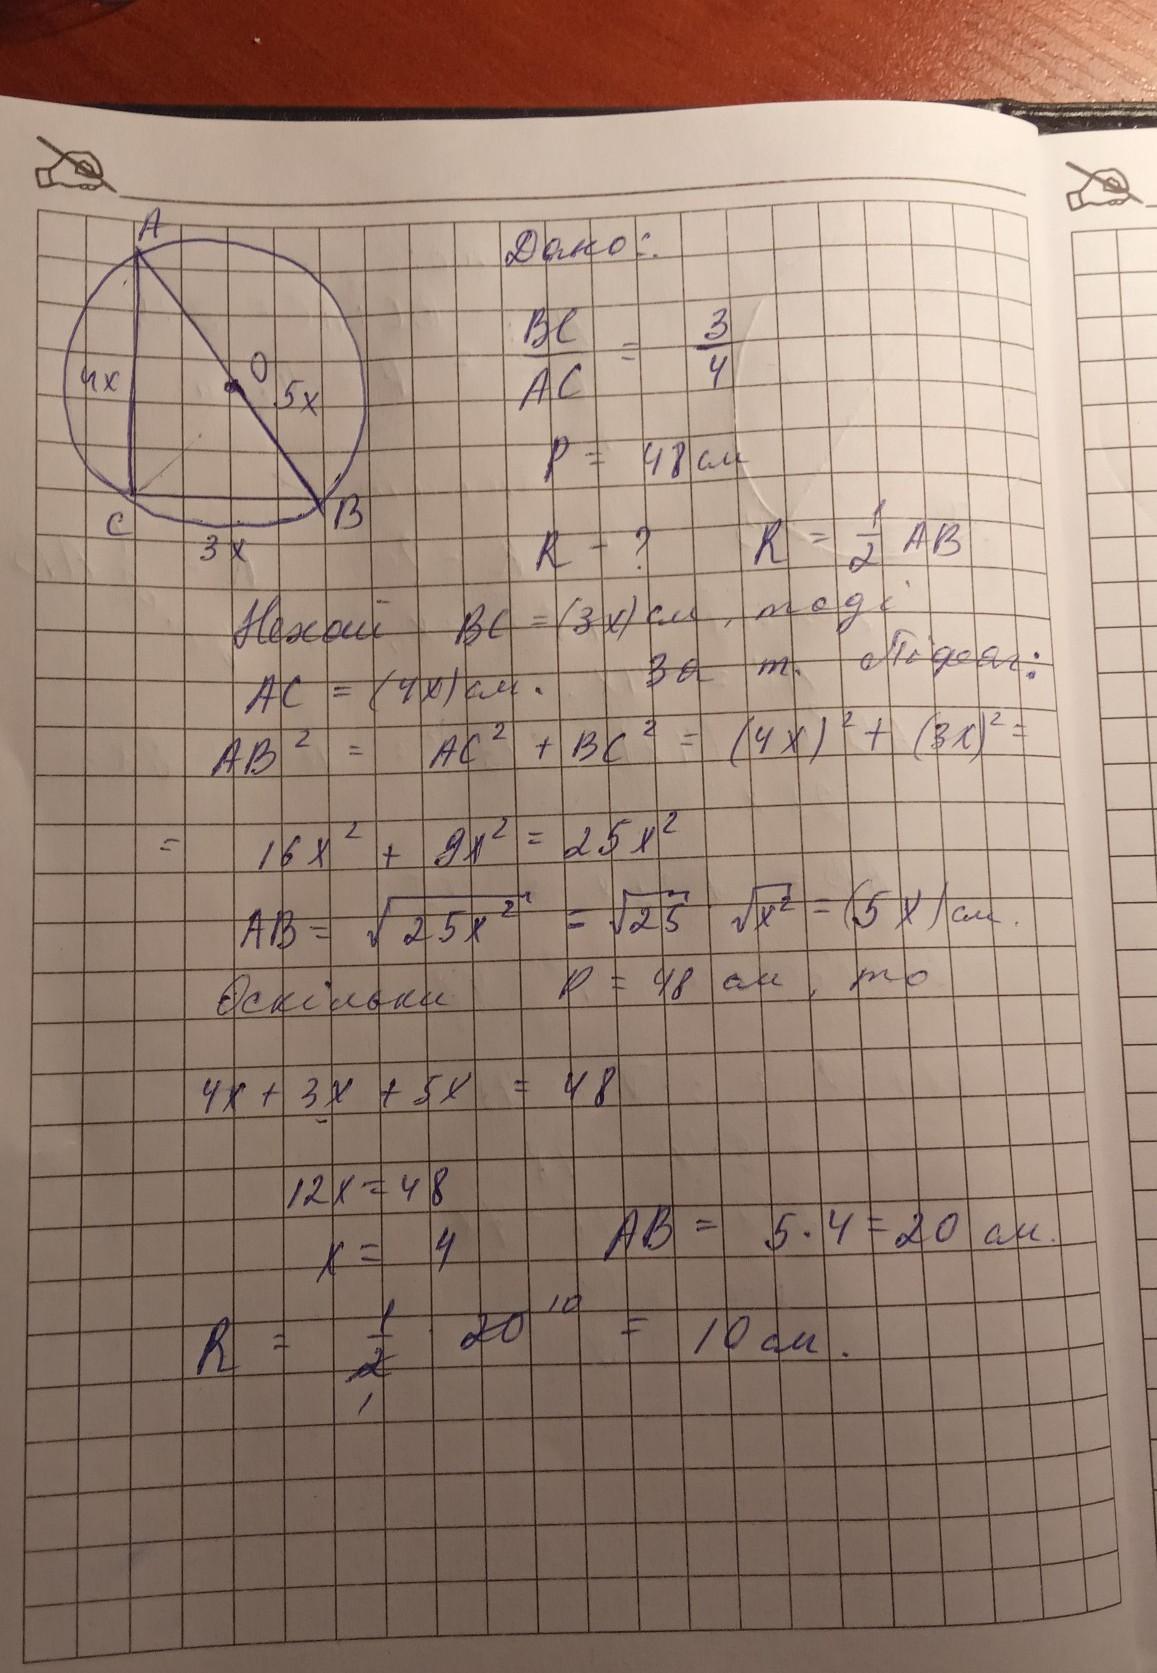 A
Дано:
BC/AC = 3/4
4x
O
5x
P = 48 см
C
B
3x
R - ? R = 1/2 AB
Нехай BC = (3x) см, тоді
AC = (4x) см. За т. Піфаг:
AB² = AC² + BC² = (4x)² + (3x)² =
= 16x² + 9x² = 25x²
AB = √25x² = √25 · √x² = (5x) см.
Оскільки P = 48 см, то
4x + 3x + 5x = 48
12x = 48
x = 4 AB = 5·4 = 20 см.
R = 1/2 · 20 10 = 10 см.
1